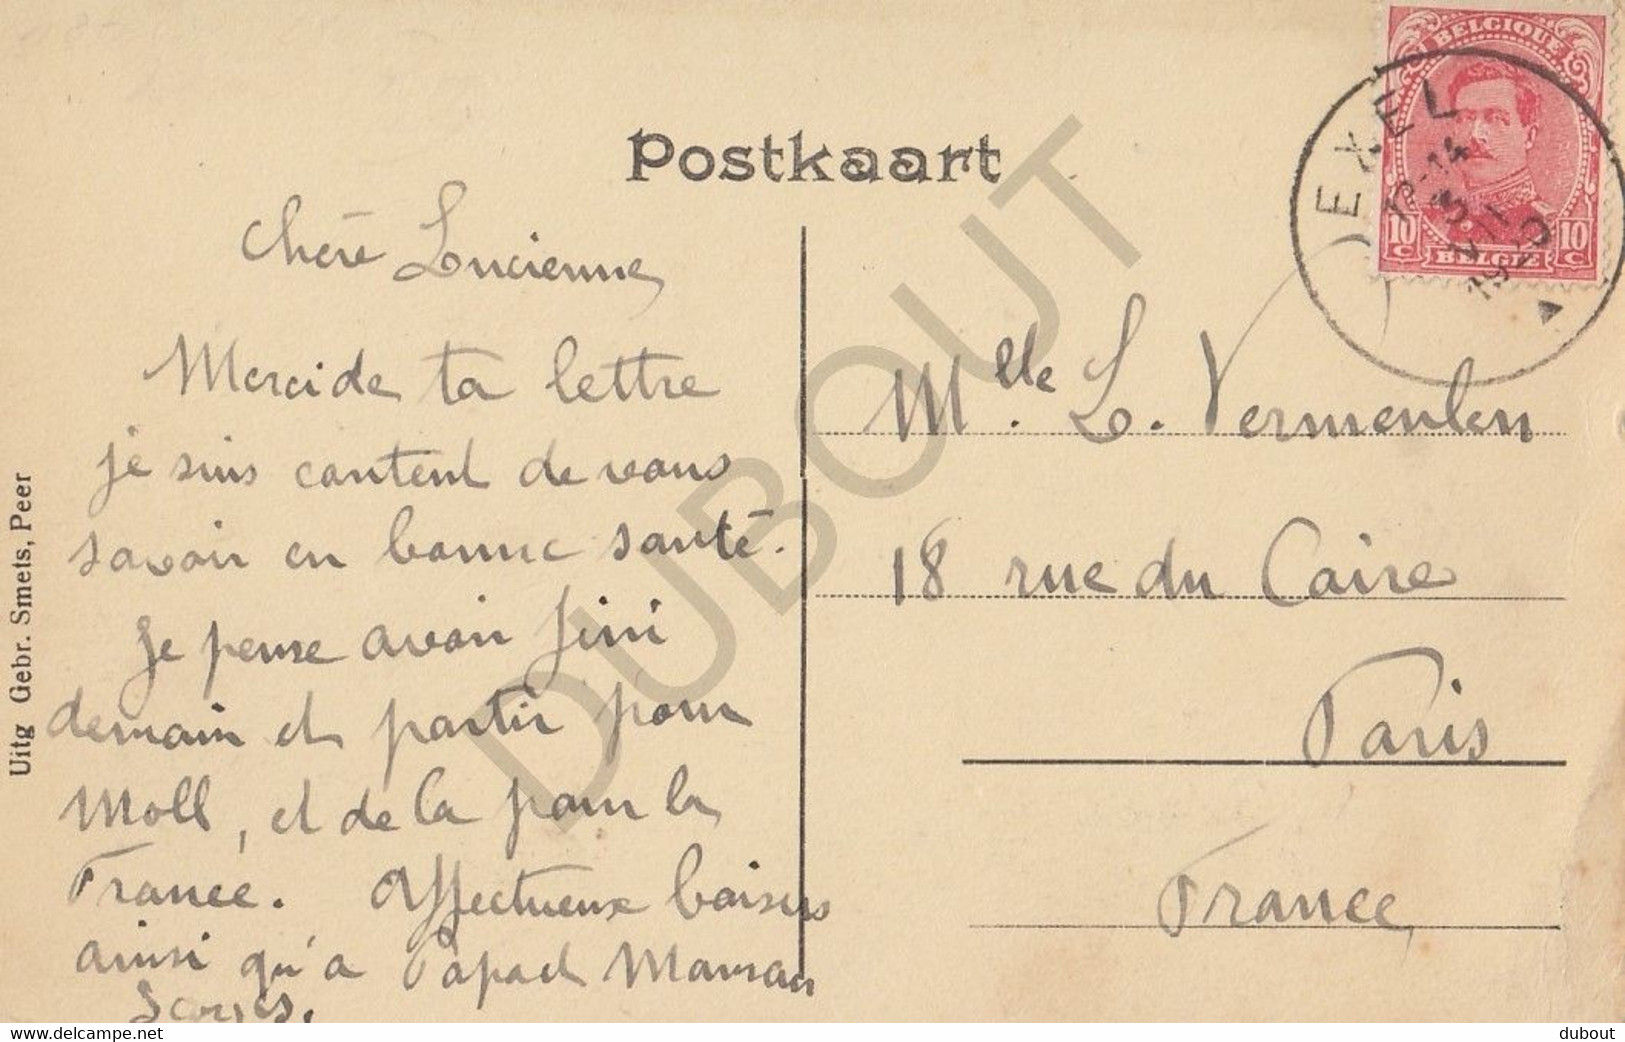 Postkaart
BELGIQUE
10 C 10 C
BELGIE
EXEL
13-14
3
VII
1920
Chère Lucienne
Merci de ta lettre
je suis content de vous
savoir en bonne santé.
Je pense avoir fini
demain et partir pour
Moll, et de la pour la
France. Affectueux baisers
ainsi qu'a Papa et Maman
Mlle L. Vermeulen
18 rue du Caire
Paris
France
Uitg Gebr. Smets, Peer
DUBOUT
www.delcampe.net
dubout